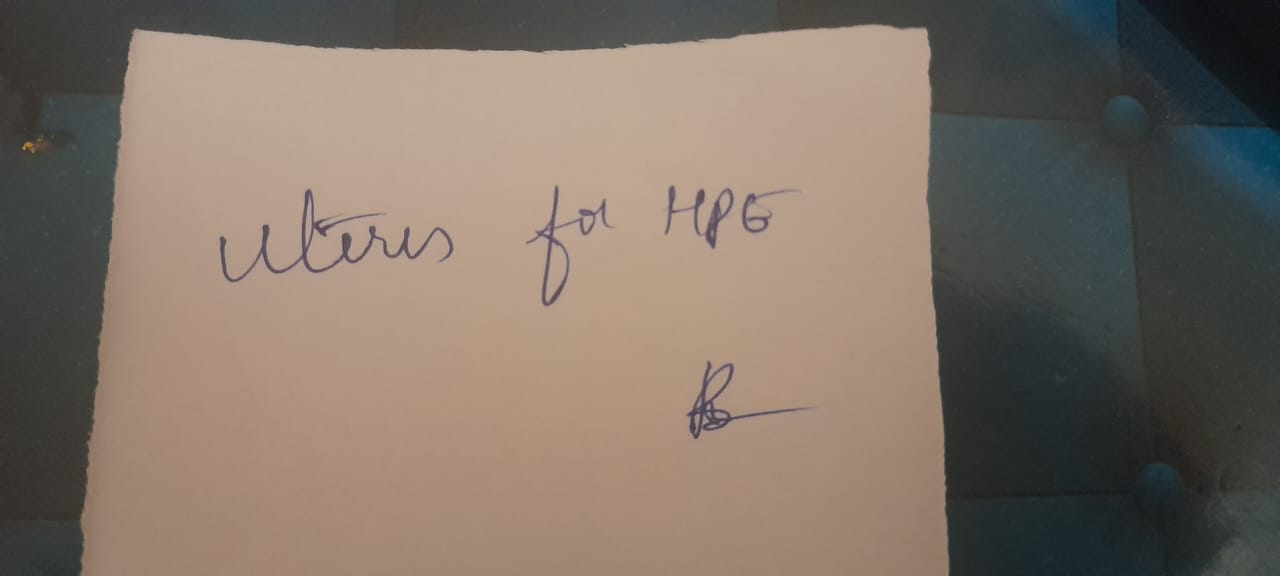 Uterus for HPE